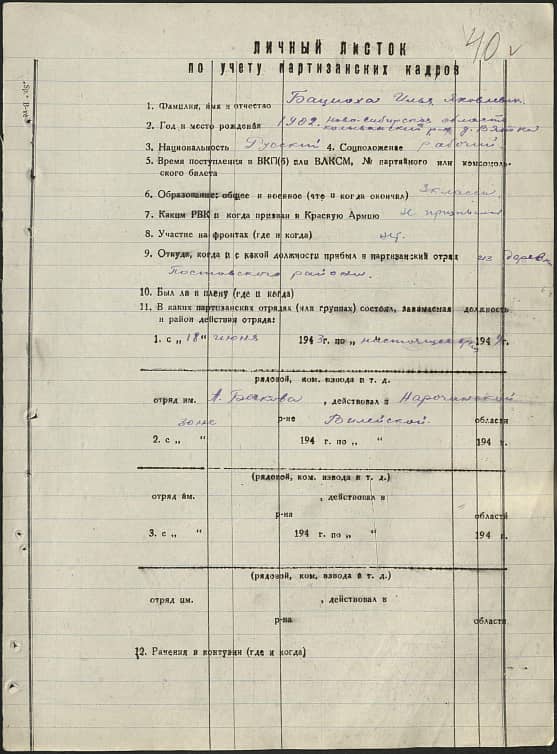 40
ЛИЧНЫЙ ЛИСТОК
по учету партизанских кадров
1. Фамилия, имя и отчество Бациоха Илья Яковлевич
2. Год и место рождения 1902. Ново-Сибирская область
р-н, д. Вятка
3. Национальность Русский 4. Соцположение рабочий
5. Время поступления в ВКП(б) или ВЛКСМ, № партийного или комсомоль-
ского билета
6. Образование: общее и военное (что и когда окончил) 3 класса
7. Каким РВК и когда призван в Красную Армию не
8. Участие на фронтах (где и когда) нет.
9. Откуда, когда и с какой должности прибыл в партизанский отряд из
Поставского района.
10. Был ли в плену (где и когда)
11. В каких партизанских отрядах (или группах) состоял, занимаемая должность
и район действия отряда:
1. с „ 18 " июня 1943 г. по „ настоящее вр. 194 г.
(рядовой, ком. взвода и т. д.
отряд им. , действовал в Нарочинской
зоне р-не Вилейской области
2. с „ " 194 г. по „ " 194 г.
(рядовой, ком. взвода и т. д.)
отряд им. , действовал в
р-на области
3. с „ " 194 г. по „ " 194 г.
(рядовой, ком. взвода и т. д.)
отряд им. , действовал в
р-на области
12. Ранения и контузии (где и когда)